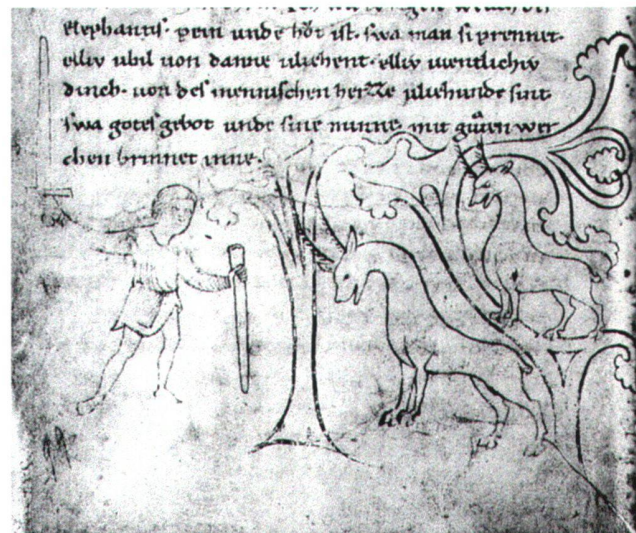 elephantis. pein unde hôt ist. swa man si prennet.
elliv ubil von danne vliehent. elliv vientlichiv
dinch. von des mennischen herze vliehunde sint
swa gotes gebot unde sine minne. mit gůten wer
chen brinnet inne.